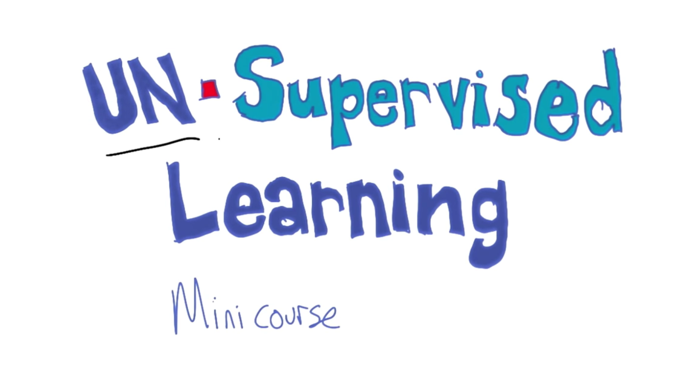 UN-Supervised
Learning
Mini course